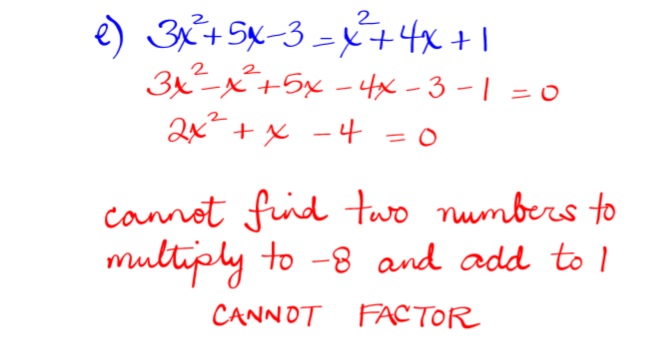 e) 3x²+5x-3=x²+4x+1
3x²-x²+5x-4x-3-1=0
2x²+x-4=0
cannot find two numbers to
multiply to -8 and add to 1
CANNOT FACTOR